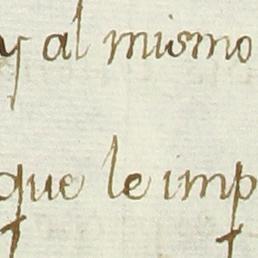 y al mismo
que le imp